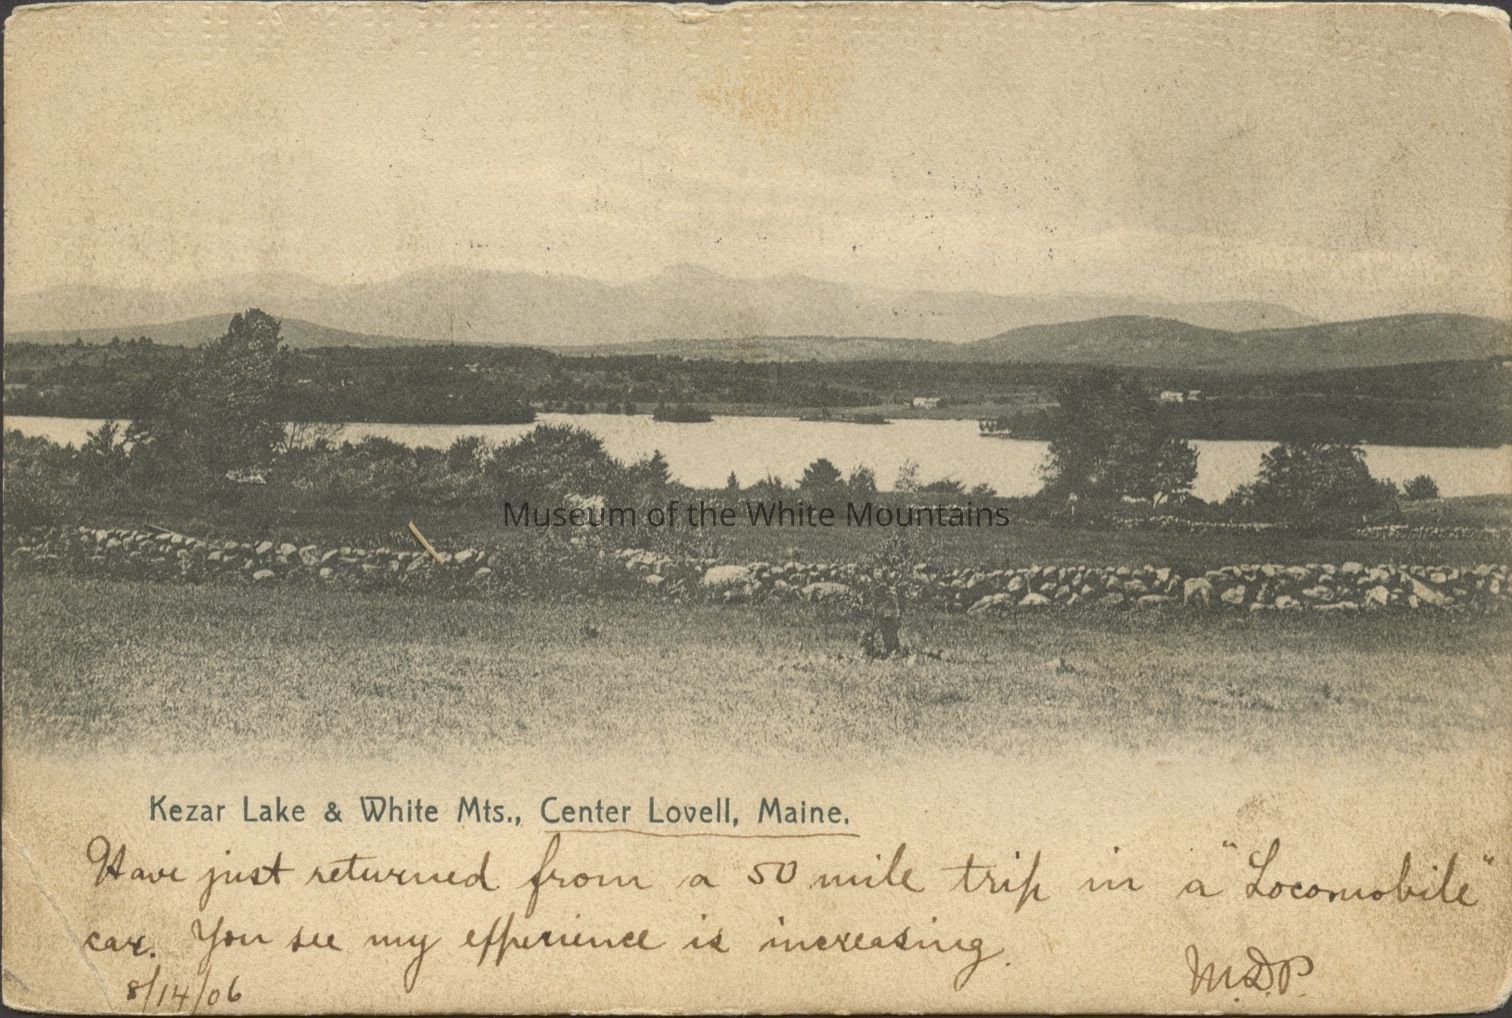 Museum of the White Mountains
Kezar Lake & White Mts., Center Lovell, Maine.
Have just returned from a 50 mile trip in a "Locomobile"
car. You see my experience is increasing.
8/14/06
M.D.P.